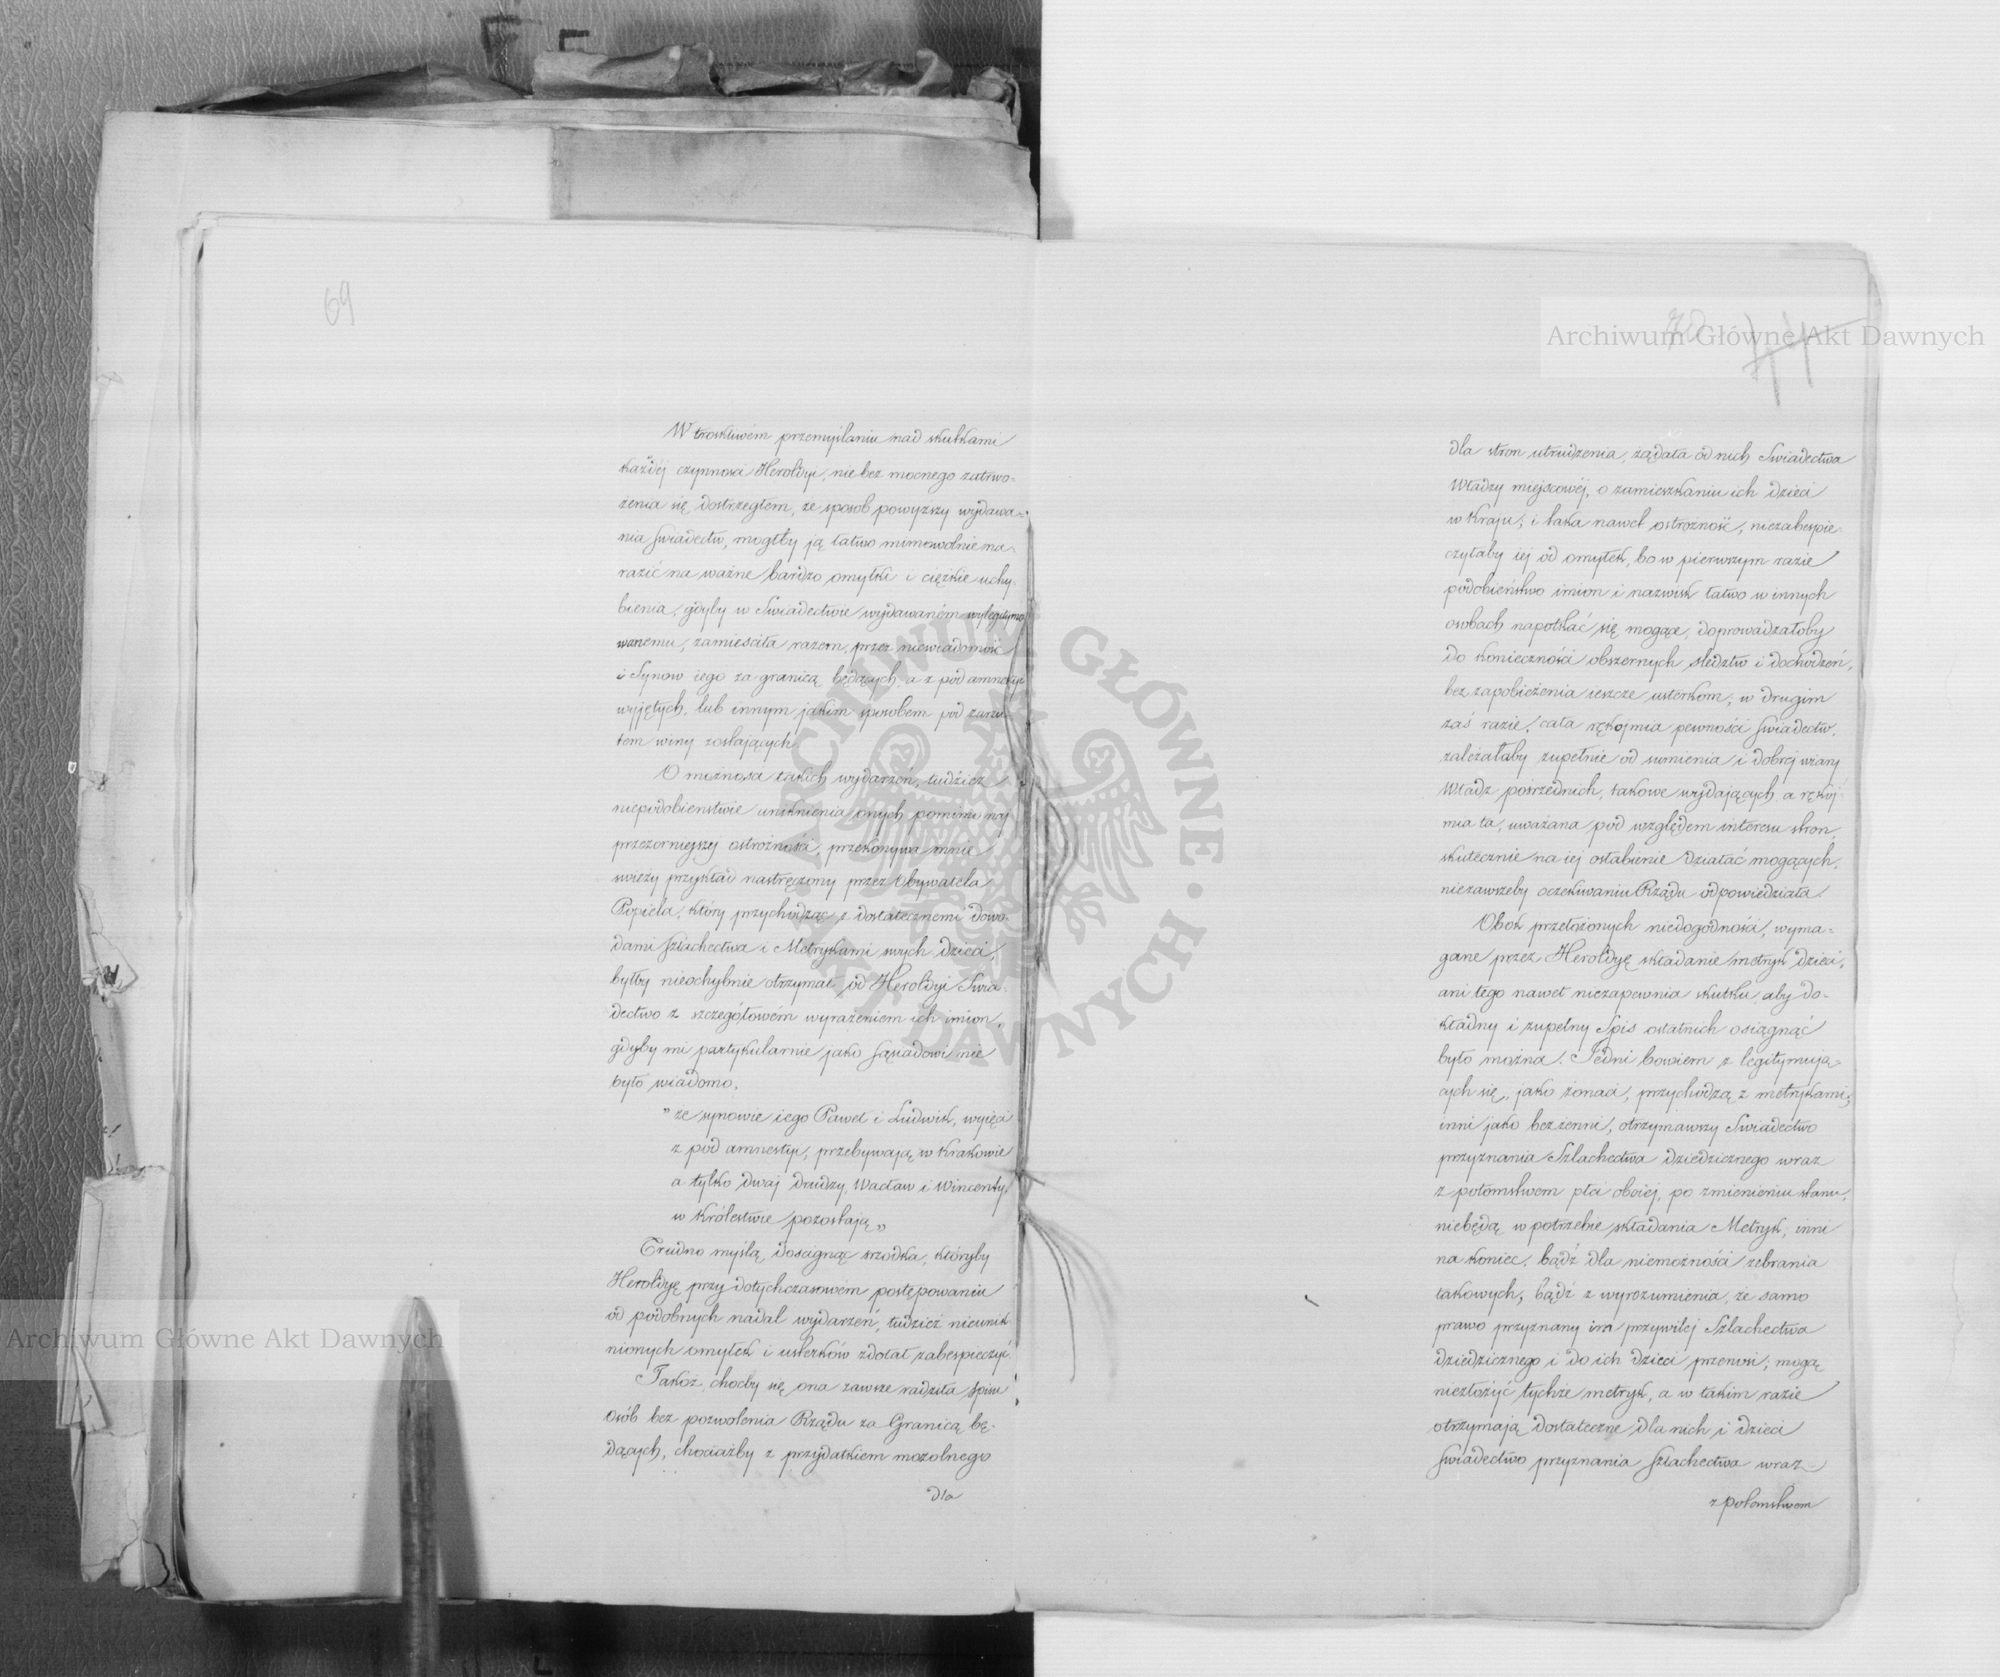 69
W troskliwém przemyślaniu nad skutkami
każdéj czynności Heroldyi, nie bez mocnego zatrwo-
żenia się dostrzegłem, że sposób powyższy wydawa-
nia świadectw, mógłby ją łatwo mimowolnie na-
razić na ważne bardzo omyłki i ciężkie uchy-
bienia, gdyby w Swiadectwie wydawaném wylegitymo
wanemu, zamieściła razem, przez niewiadomość
i Synow iego za granicą będących, a z pod amnestyi
wyjętych, lub innym jakim sposobem pod zarzu-
tem winy zostających.
O możności takich wydarzeń, tudzież
niepodobieństwie uniknienia onych pomimo naj
przezorniejszéj ostrożności, przekonywa mnie
świeży przykład nastręczony przez Obywatela
Popiela, który przychodząc z dostatecznemi dowo-
dami szlachectwa i Metrykami swych dzieci,
byłby nieochybnie otrzymał od Heroldyi Swia-
dectwo z szczegółowém wyrażeniem ich imion,
gdyby mi partykularnie jako sąsiadowi nie
było wiadomo,
"że synowie iego Paweł i Ludwik, wyięci
z pod amnestyi, przebywają w Krakowie
a tylko dwaj drudzy, Wacław i Wincenty,
w Królestwie pozostają"
Trudno myślą doścignąć srodka, któryby
Heroldyę przy dotychczasowém postępowaniu
od podobnych nadal wydarzeń, tudzież nieunik
nionych omyłek i usterków zdołał zabespieczyć.
Jakoż, choćby się ona zawsze radziła spisu
osób bez pozwolenia Rządu za Granicą bę-
dących, chociażby z przydatkiem mozolnego
dla
70
dla stron utrudzenia, żądała od nich Swiadectwa
Władzy miejscowéj, o zamieszkaniu ich dzieci
w Kraju; i taka nawet ostrożność, niezabespie-
czyłaby iéj od omyłek, bo w pierwszym razie
podobieństwo imion i nazwisk łatwo w innych
osobach napotkać się mogące, doprowadzałoby
do konieczności obszernych śledztw i dochodzeń,
bez zapobieżenia ieszcze usterkom; w drugim
zaś razie, cała rękojmia pewności świadectw,
zależałaby zupełnie od sumienia i dobréj wiary
Władz pośrzednich, takowe wydających, a rękoj-
mia ta, uważana pod względem interesu stron,
skutecznie na iéj osłabienie działać mogących,
niezawszeby oczekiwaniu Rządu odpowiedziała.
Obok przełożonych niedogodności, wyma-
gane przez Heroldyę składanie metryk dzieci,
ani tego nawet niezapewnia skutku aby do-
kładny i zupełny Spis ostatnich osiągnąć
było można. Jedni bowiem z legitymują-
cych się, jako żonaci, przychodzą z metrykami;
inni jako bezżenni, otrzymawszy Swiadectwo
przyznania Szlachectwa dziedzicznego wraz
z potomstwem płci oboiéj, po zmienieniu stanu,
niebędą w potrzebie składania Metryk, inni
na koniec, bądź dla niemożności zebrania
takowych, bądź z wyrozumienia, że samo
prawo przyznany im przywiléj Szlachectwa
dziedzicznego i do ich dzieci przenosi; mogą
niezłożyć tychże metryk, a w takim razie
otrzymają dostateczne dla nich i dzieci
Swiadectwo przyznania Szlachectwa wraz
z potomstwem
Archiwum Główne Akt Dawnych
Archiwum Główne Akt Dawnych
ARCHIWUM GŁÓWNE AKT DAWNYCH